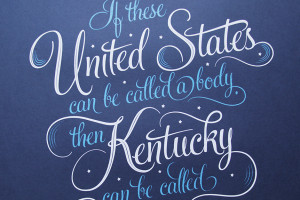 If these
United States
can be called a body
then
Kentucky
can be called